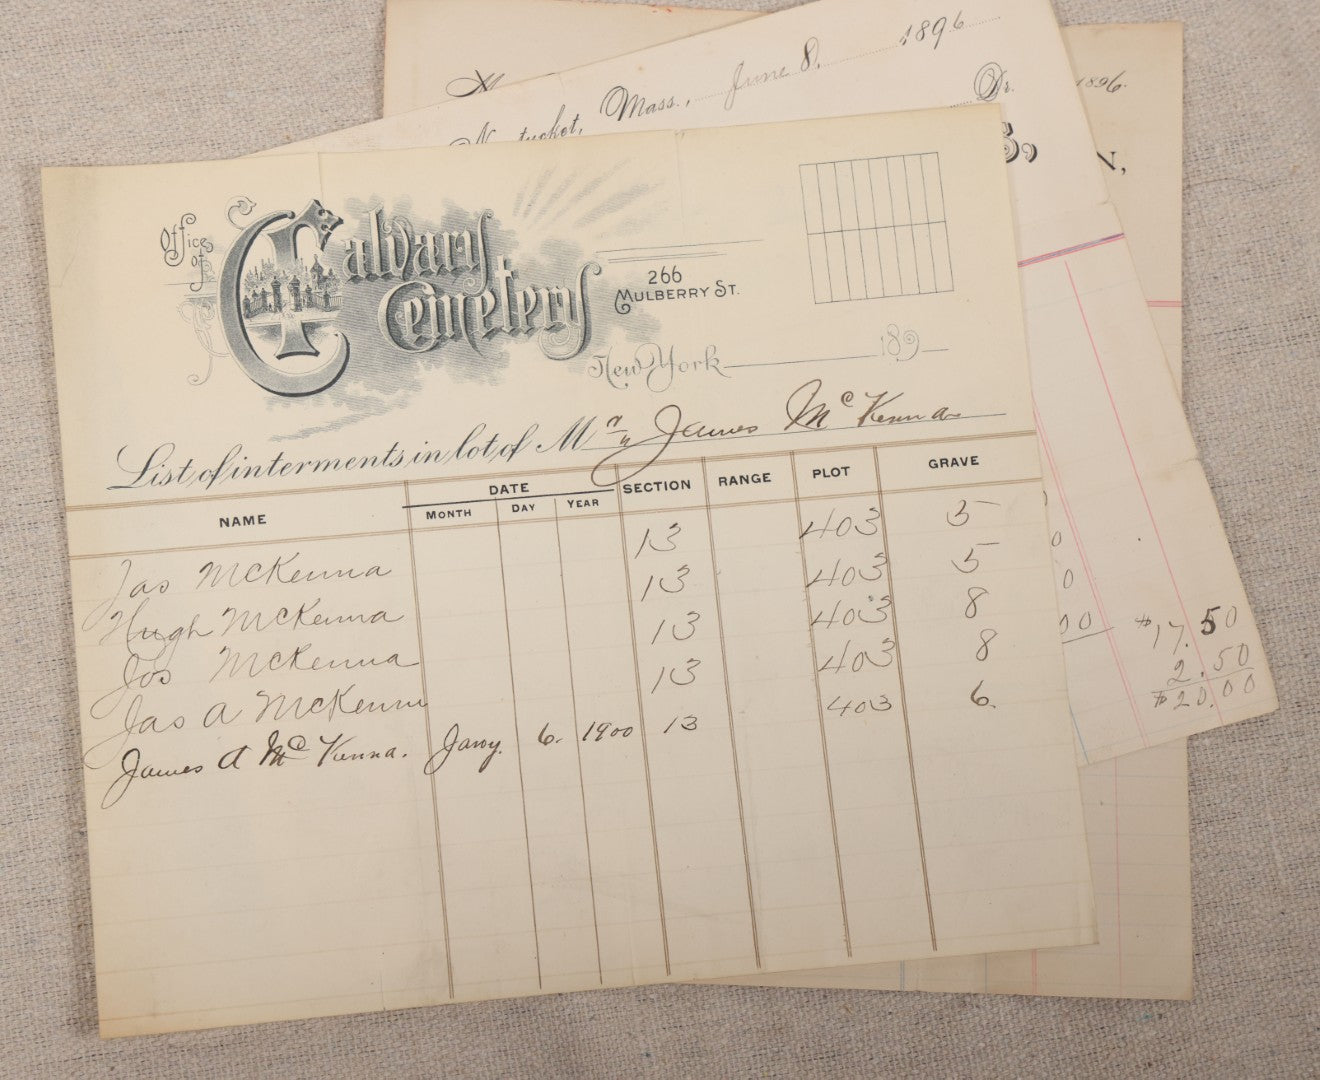 1896.
Nantucket, Mass., June 8, 1896
Dr.
S,
N,
Office of
Calvary
Cemetery
266
Mulberry St.
New York 189
List of interments in lot of M James McKenna
NAME DATE SECTION RANGE PLOT GRAVE
MONTH DAY YEAR
Jas McKenna 13 403 5
Hugh McKenna 13 403 5
Jos McKenna 13 403 8
Jas A McKenna 13 403 8
James A McKenna. Jany. 6. 1900 13 403 6.
0
0
00 $17.50
2.50
$20.00